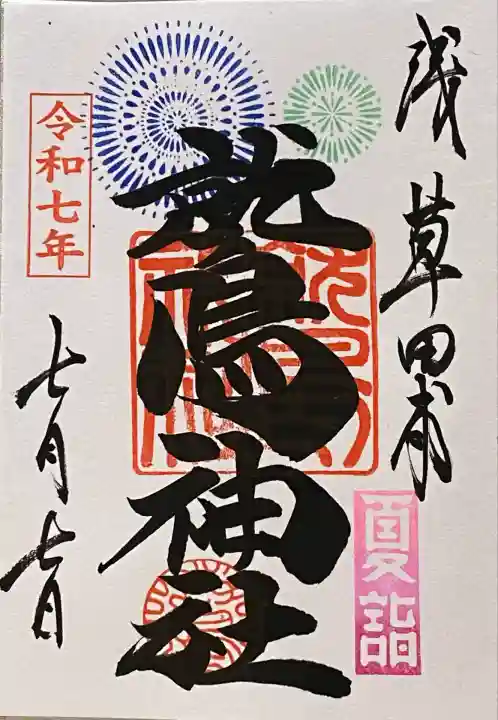 浅草田甫
鷲神社
夏詣
令和七年
七月七日